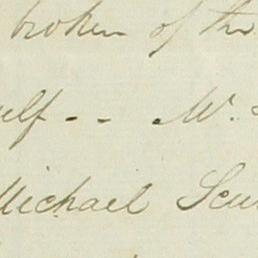 broken of the
elf -- Mr.
Michael Scu